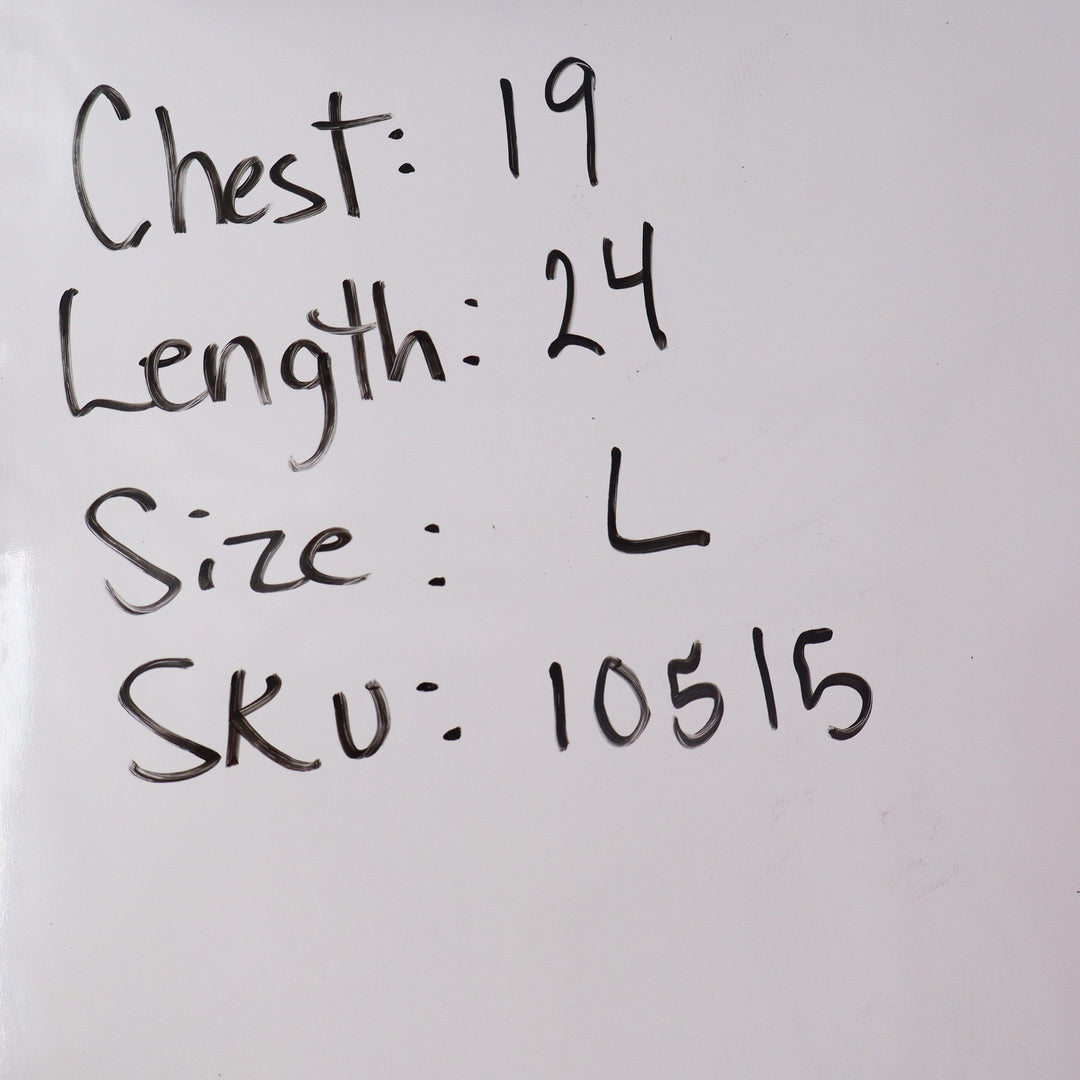 Chest: 19
Length: 24
Size: L
SKU: 10515